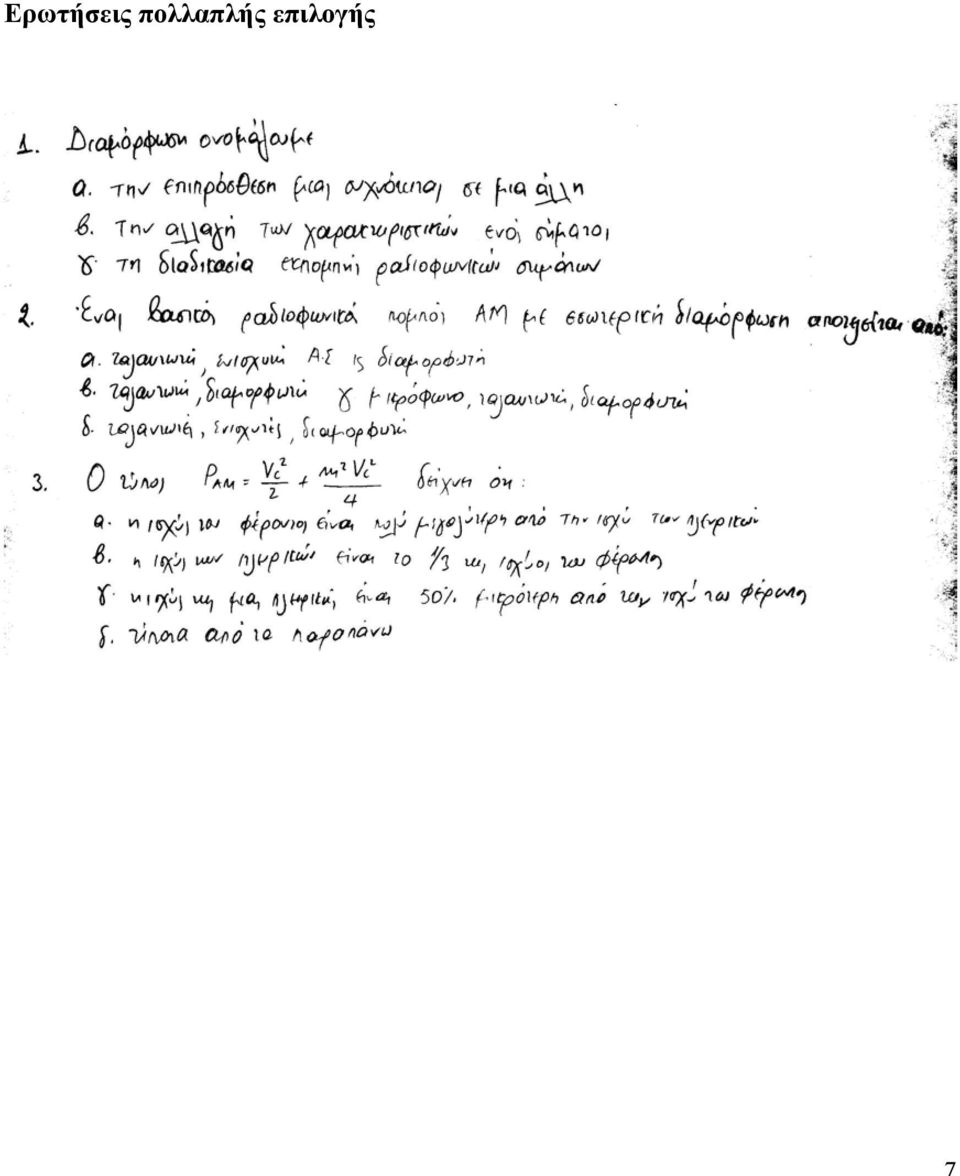 Ερωτήσεις πολλαπλής επιλογής
1. Διαμόρφωση ονομάζουμε
α. την επιπρόσθεση μιας συχνότητας σε μια άλλη
β. Την αλλαγή των χαρακτηριστικών ενός σήματος
γ. τη διαδικασία εκπομπής ραδιοφωνικών σημάτων
2. Ένας βασικός ραδιοφωνικός πομπός AM με εσωτερική διαμόρφωση αποτελείται από:
α. ταλαντωτή, ενισχυτή Α.Σ ς διαμορφωτή
β. ταλαντωτή, διαμορφωτή γ μικρόφωνο, ταλαντωτή, διαμορφωτή
δ. ταλαντωτής, ενισχυτές, διαμορφωτή
3. Ο τύπος P_AM = V_c²/2 + m²V_c²/4 δείχνει ότι:
α. η ισχύς του φέροντος είναι πολύ μεγαλύτερη από την ισχύ των πλευρικών
β. η ισχύς των πλευρικών είναι το 1/3 της ισχύος του φέροντος
γ. η ισχύς της μιας πλευρικής είναι 50% μικρότερη από την ισχύ του φέροντος
δ. τίποτα από τα παραπάνω
7